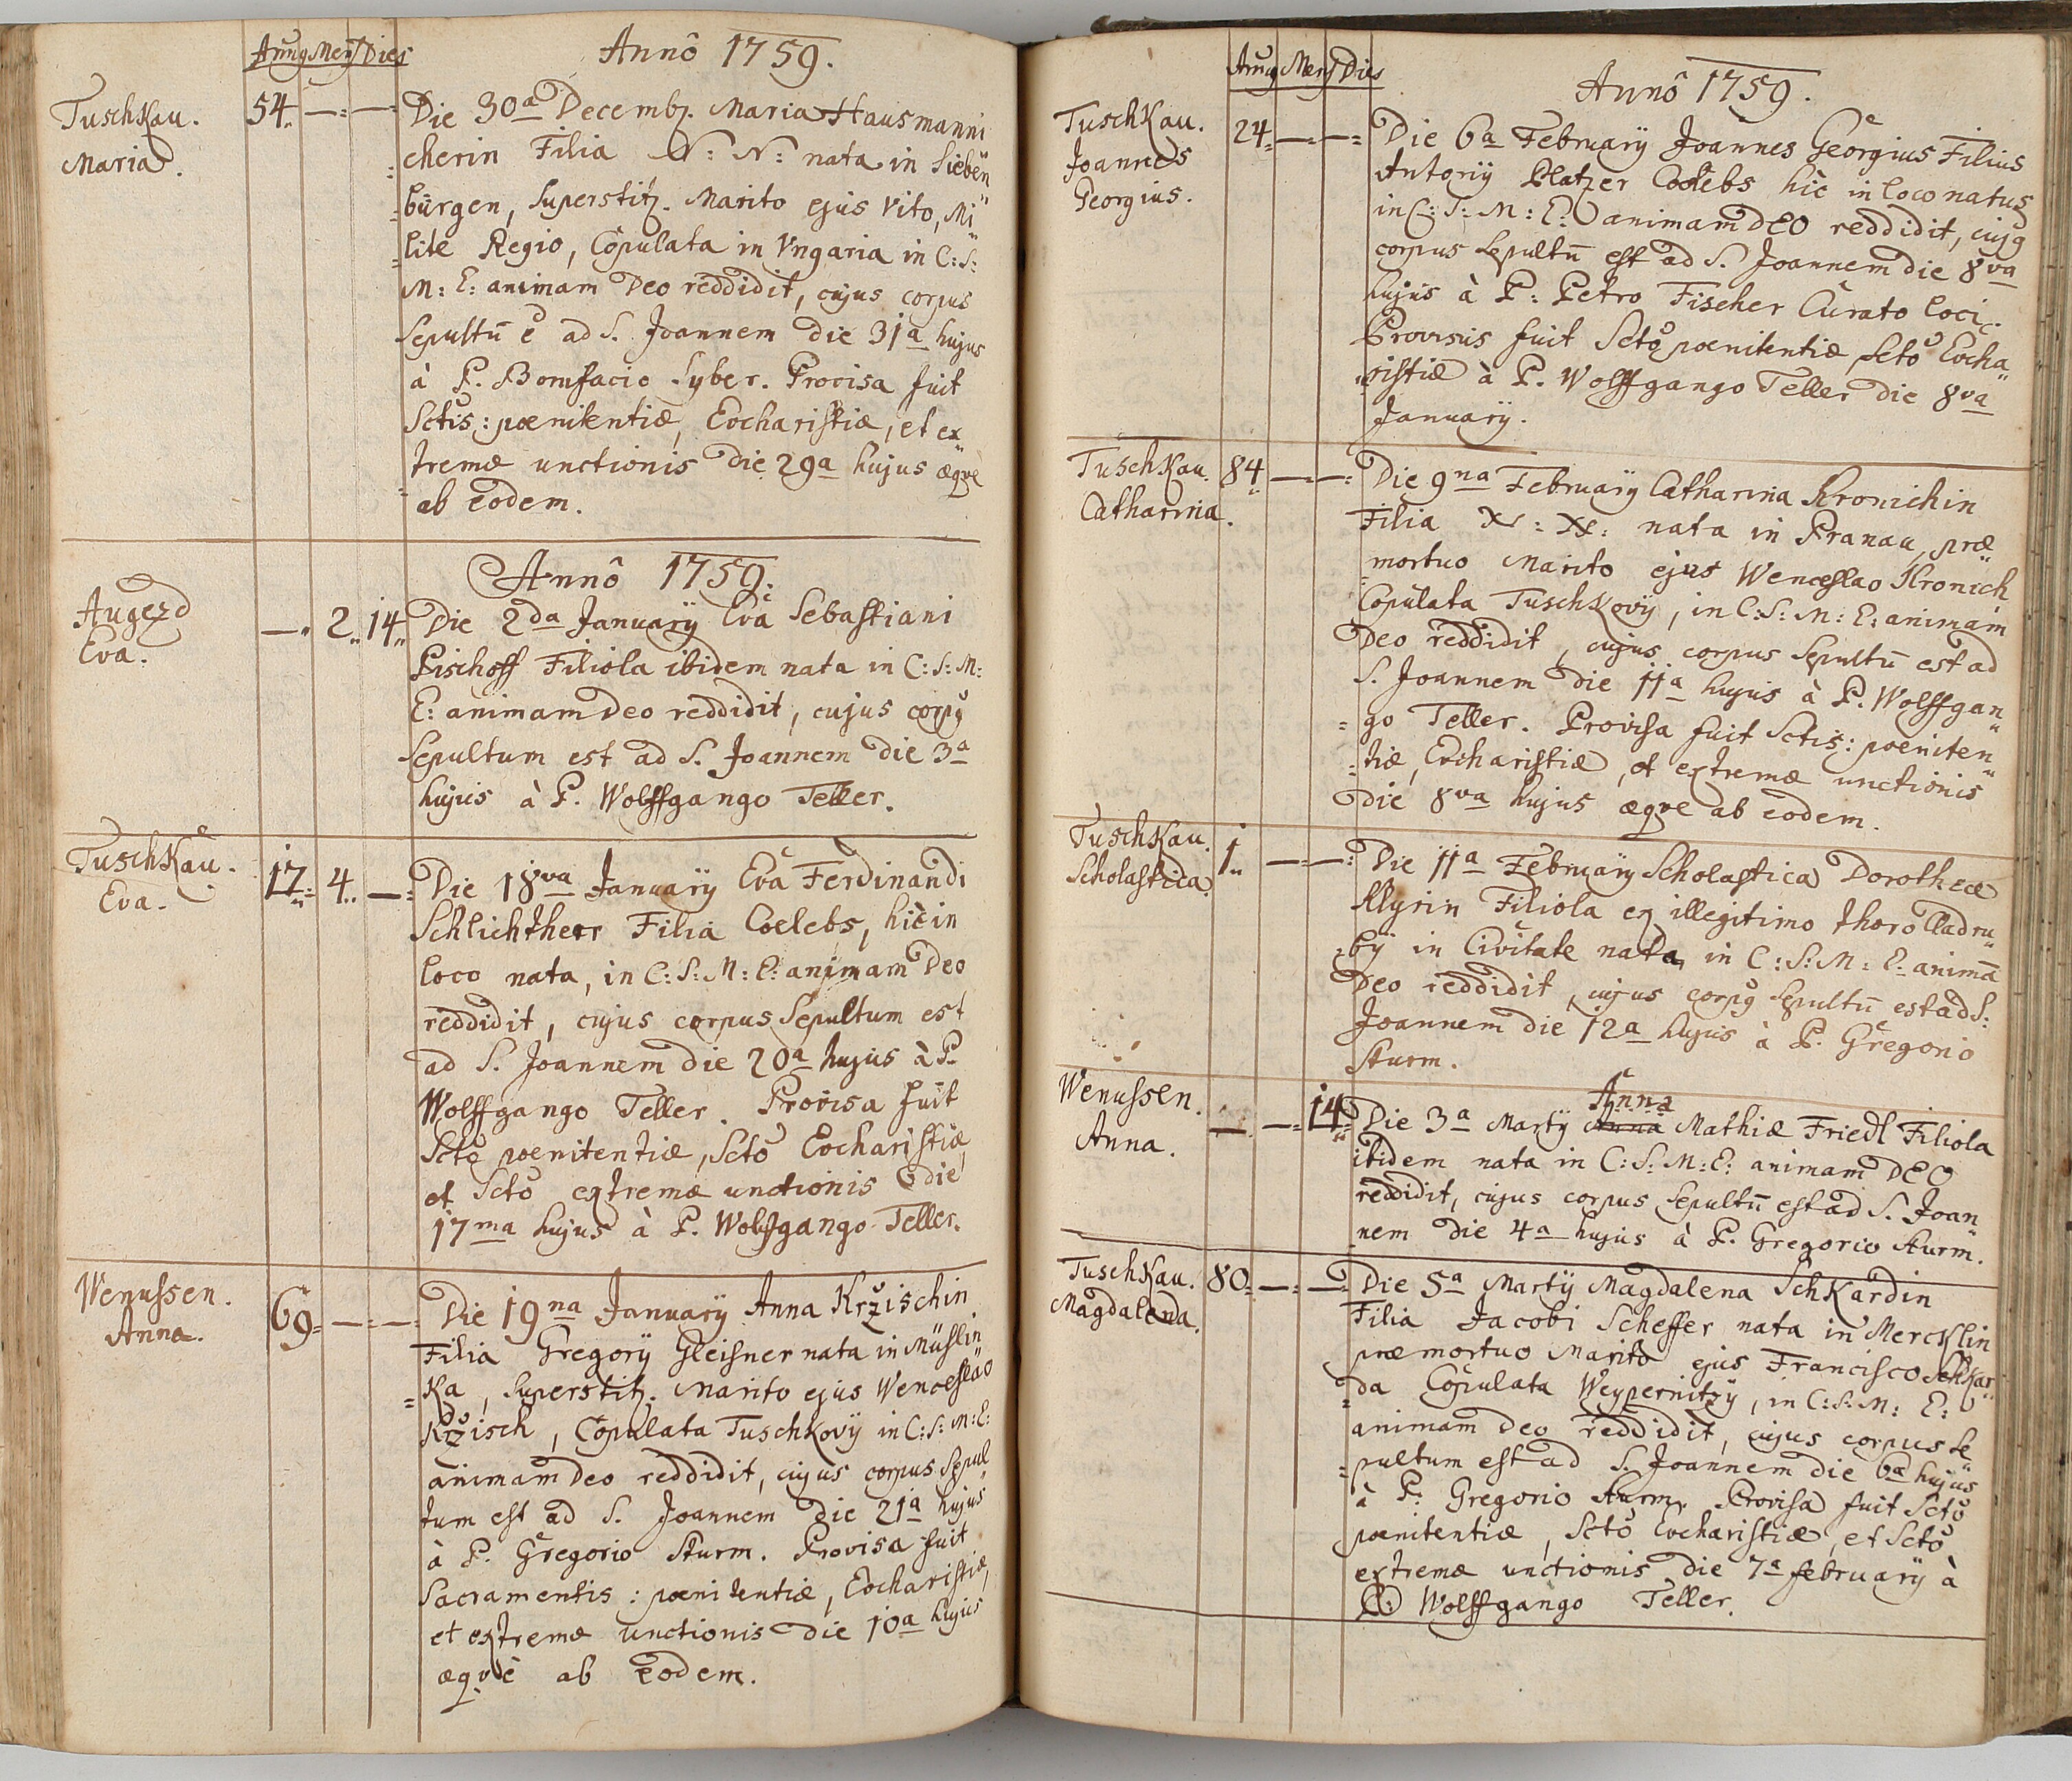 Annus Mens Dies
Annô 1759.
Tuschkau.
Maria.
54.. —:—:
Die 30a Decemb. Maria Hausmanni
cherin Filia N: N: nata in Sieben
bürgen, superstit. Marito ejus Vito, Mi
lite Regio, Copulata in Vngaria in C: S:
M: E: animam Deo reddidit, cujus corpus
sepultū ē ad S. Joannem die 31a hujus
à P. Bonifacio Syber. Provisa fuit
Sctis: poenitentiæ, Eucharistiæ, et ex
tremæ unctionis die 29a hujus æqve
ab eodem.
Annô 1759.
Augezd
Eva.
—.. 2.. 14..
Die 2da Januarÿ Eva Sebastiani
Pischoff Filiola ibidem nata in C: S: M:
E: animam Deo reddidit, cujus corpg
sepultum est ad S. Joannem die 3a
hujus à P. Wolffgango Teller.
Tuschkau.
Eva.
17.. 4.. —:
Die 18va Januarÿ Eva Ferdinandi
Schlichtherr Filia Coelebs, hic in
loco nata, in C: S: M: E: animam Deo
reddidit, cujus corpus sepultum est
ad S. Joannem die 20a hujus à P.
Wolffgango Teller. Provisa fuit
Scto poenitentiæ, Scto Eucharistiæ
et Scto extremæ unctionis die
17ma hujus à P. Wolfgango Teller.
Wenussen.
Anna.
69. —:—:
Die 19na Januarÿ Anna Kržischin
Filia Gregorÿ Gleisner nata in Müslin
ka, superstit. Marito ejus Wenceslao
Kržisch, Copulata Tuschkovÿ in C: S: M: E:
animam Deo reddidit, cujus corpus sepul
tum est ad S. Joannem die 21a hujus
à P. Gregorio Sturm. Provisa fuit
Sacramentis: poenitentiæ, Eucharistiæ,
et extremæ unctionis die 10a hujus
æqvè ab eodem.
Annus Mens Dies
Annô 1759.
Tuschkau.
Joannes
Georgius.
24. —:—:
Die 6a Februarÿ Joannes Georgius Filius
Antonÿ Platzer Coelebs hic in loco natus
in C: S: M: E: animam DEO reddidit, cujg
corpus sepultū est ad S. Joannem die 8va
hujus à P: Petro Fischer Curato loci.
Provisus fuit Scto poenitentiæ Scto Eucha
ristiæ à P. Wolffgango Teller die 8va
Januarÿ.
Tuschkau.
Catharina.
84.. —:—:
Die 9na Februarÿ Catharina Kronichin
Filia N: N: nata in Pranau, præ
mortuo Marito ejus Wenceslao Kronich
Copulata Tuschkovÿ, in C: S: M: E: animam
Deo reddidit, cujus corpus sepultū est ad
S. Joannem die 11a hujus à P. Wolffgan
go Teller. Provisa fuit Sctis: poeniten
tiæ, Eucharistiæ, et extremæ unctionis
die 8va hujus æqve ab eodem.
Tuschkau.
Scholastica.
1.. —:—:
Die 11a Februarÿ Scholastica Dorotheæ
Klyrin Filiola ex illegitimo thoro Cladru
bÿ in Civitate nata, in C: S: M: E: animā
Deo reddidit, cujus corpg sepultū est ad S:
Joannem die 12a hujus à P. Gregorio
Sturm.
Wenussen.
Anna.
— —: 14..
Anna
Die 3a Martÿ Anna Mathiæ Friedl Filiola
ibidem nata in C: S: M: E: animam DEO
reddidit, cujus corpus sepultū est ad S. Joan
nem die 4a hujus à P. Gregorio Sturm.
Tuschkau.
Magdalena.
80. —:—:
Die 5a Martÿ Magdalena Schkardin
Filia Jacobi Scheffer nata in Mercklin
præmortuo Marito ejus Francisco Schkar
da Copulata Weypernitzÿ, in C: S: M: E:
animam Deo reddidit, cujus corpus se
pultum est ad S. Joannem die 6a hujus
à P. Gregorio Sturm. Provisa fuit Scto
poenitentiæ, Scto Eucharistiæ, et Scto
extremæ unctionis die 7a februarÿ à
P. Wolffgango Teller.